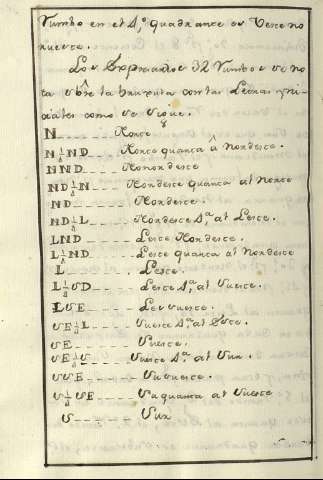 Rumbo en el 4,º quadrante es Oesteno
rueste.
Los Expresados 32 Rumbos se no
ta sobre la bruxula con las Letras yni-
ciales como se sigue.
N ------ Norte
N¼ND ------ Norte quarta â Nordeste.
NND ------ Nornordeste
ND¼N ------ Nordeste quarta al Norte
ND ------ Nordeste.
ND¼L ------ Nordeste 4.ª al Leste.
LND ------ Leste Nordeste.
L¼ND ------ Leste quarta al Nordeste
L ------ Leste.
L¼SD ------ Leste 4.ª al Sueste.
LSE ------ Lessueste.
SE¼L ------ Sueste 4.ª al Leste.
SE ------ Sueste.
SE¼S ------ Sueste 4.ª al Sur.
SSE ------ Susueste.
S¼SE ------ S quarta al Sueste
S ------ Sur